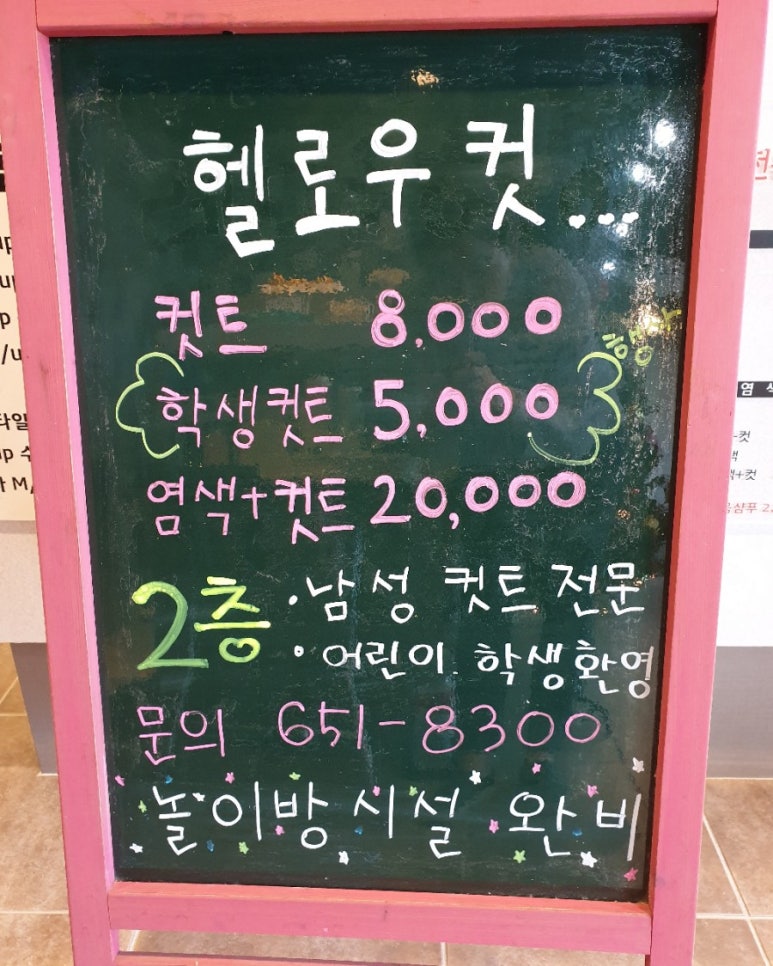 헬로우 컷...
컷트 8,000
학생컷트 5,000
행사
염색+컷트 20,000
2층
·남성 컷트 전문
·어린이. 학생환영
문의 651-8300
놀이방시설 완비